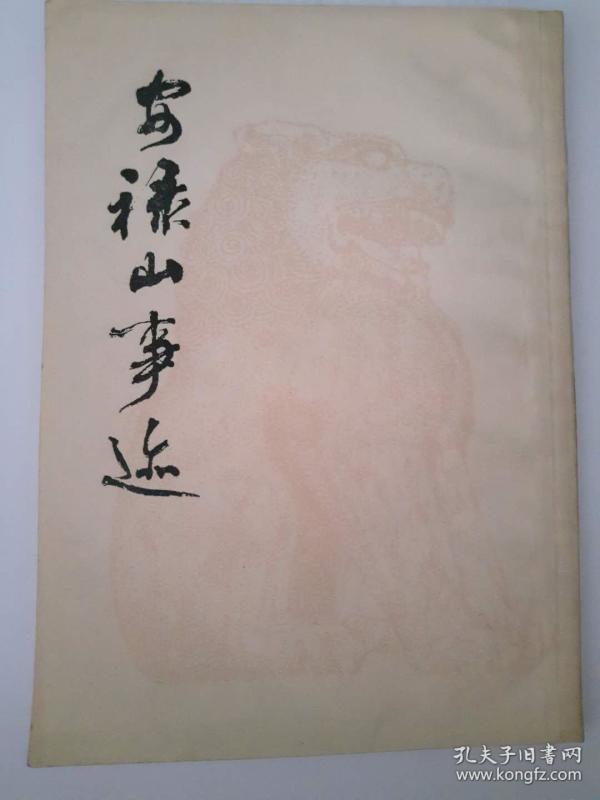 安禄山事迹
孔夫子旧书网
www.kongfz.com